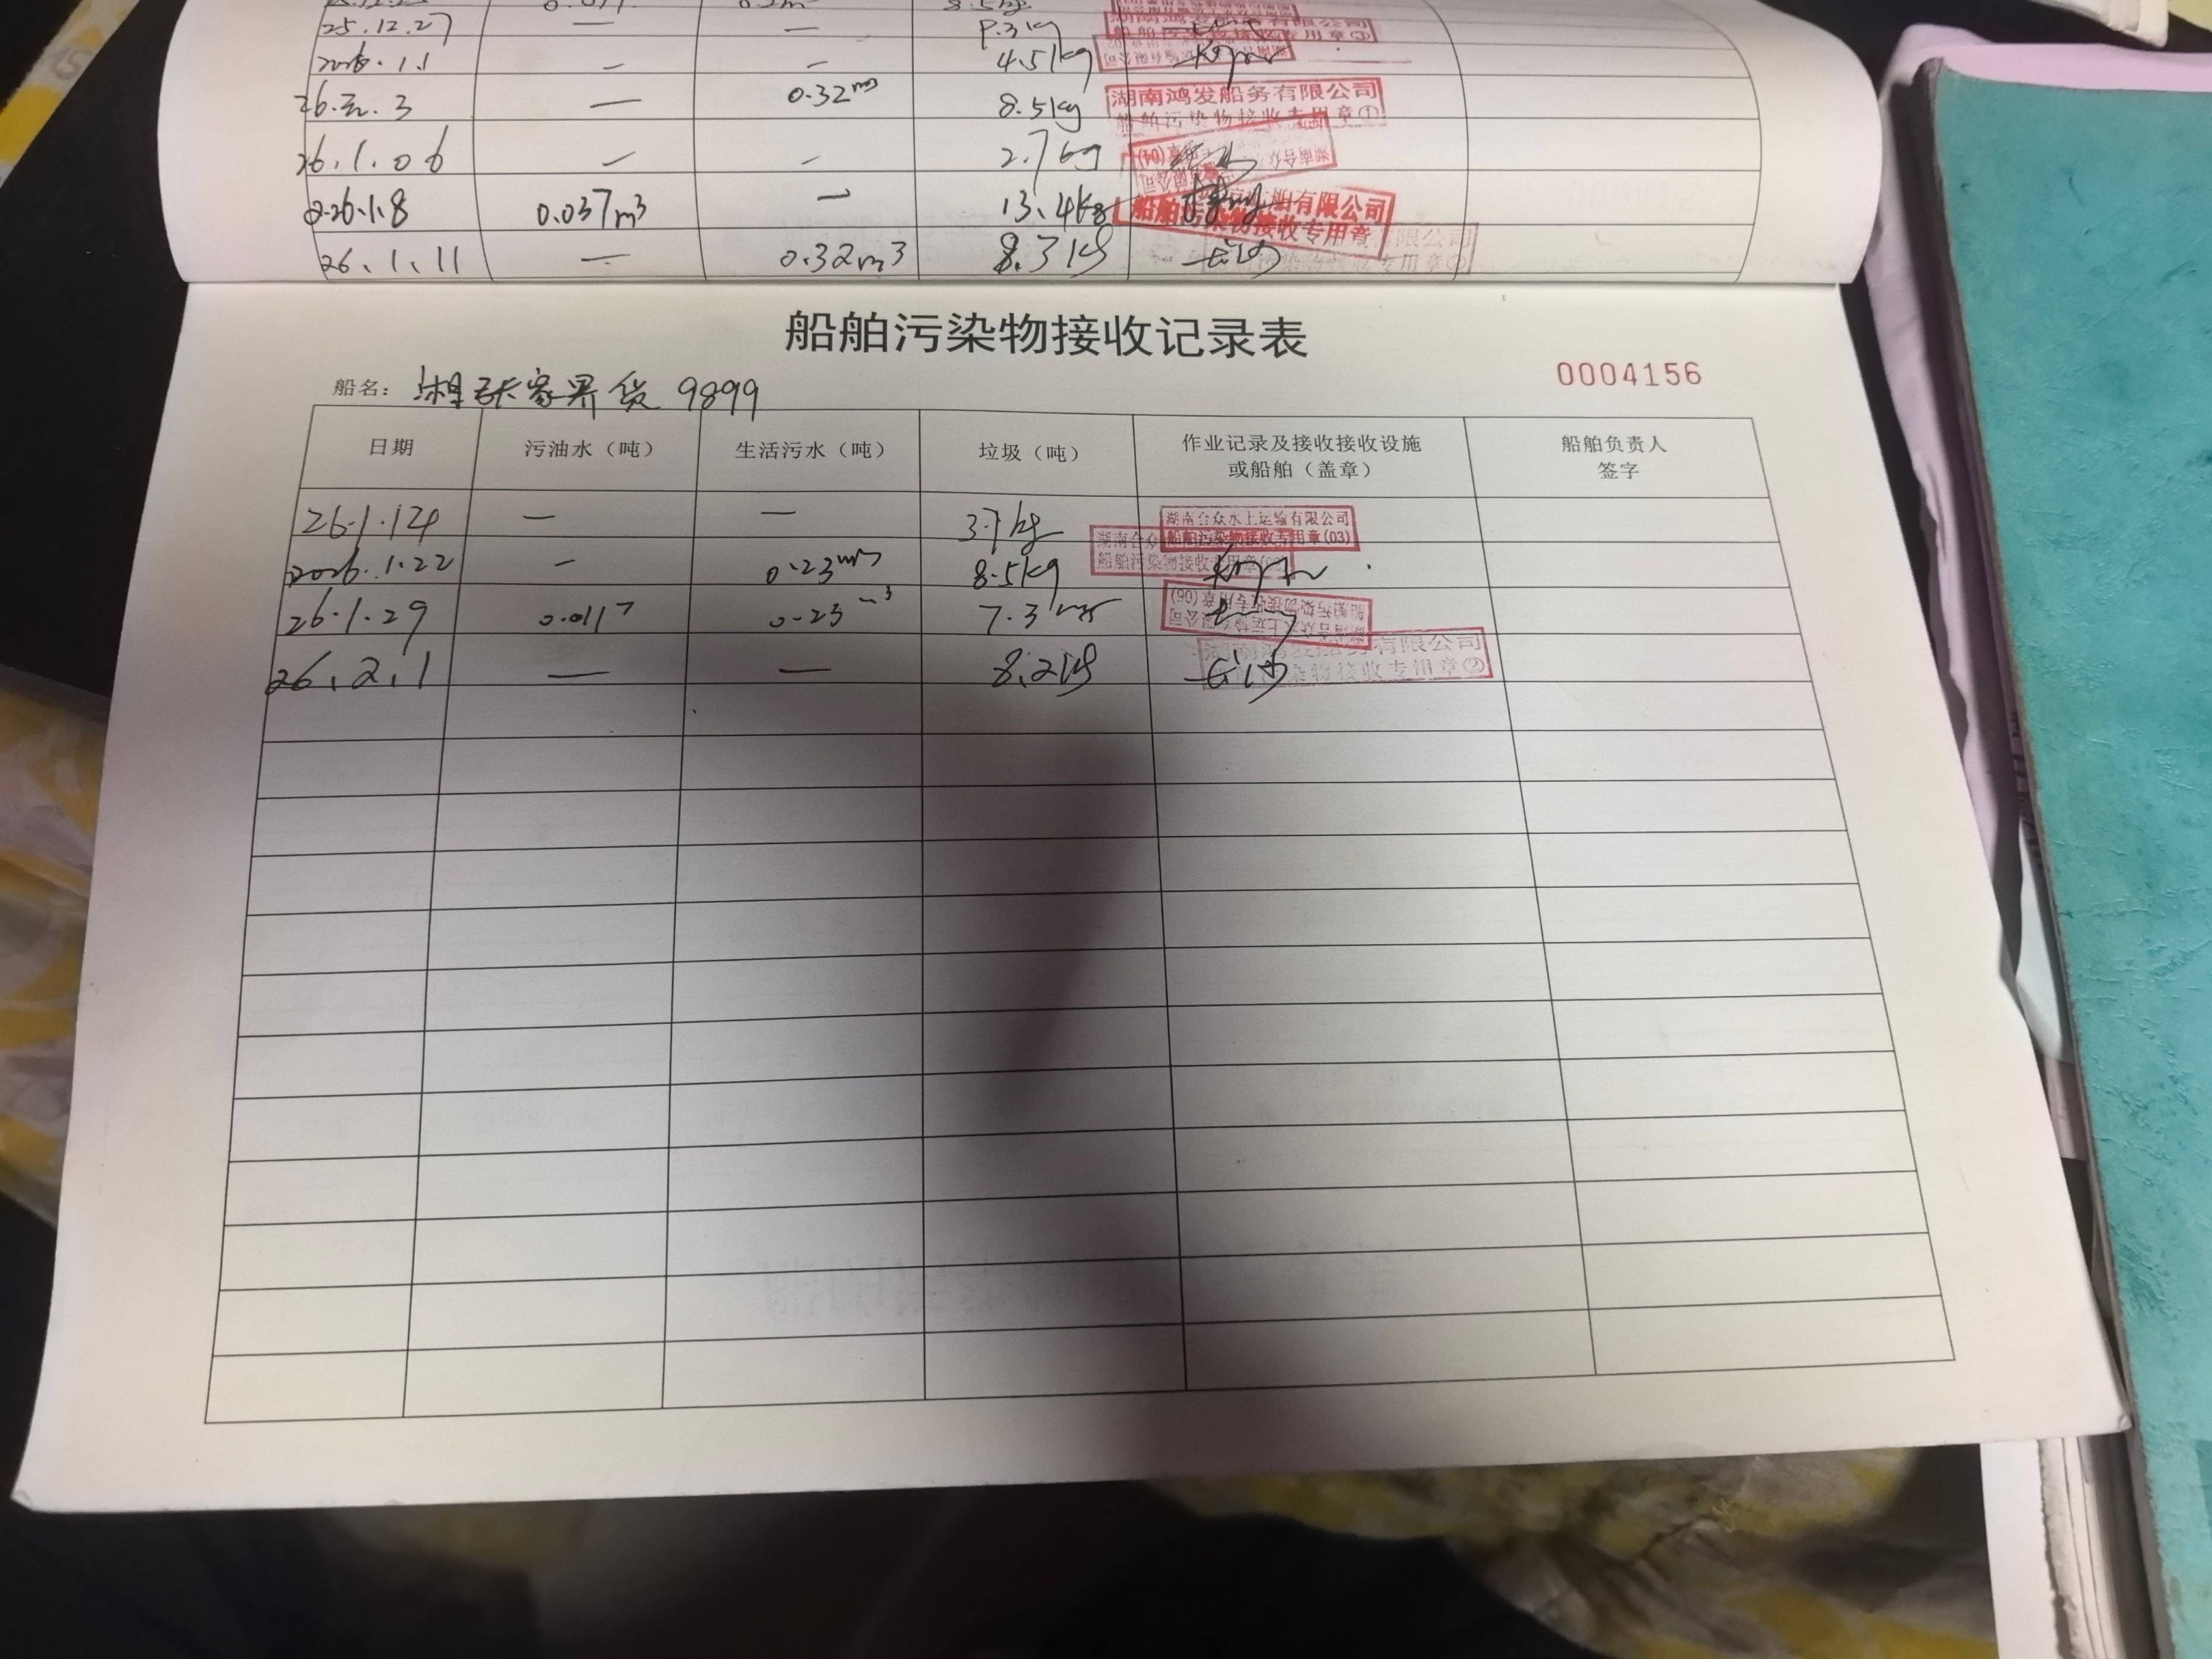 25.12.27 — — 9.3kg
2026.1.1 — — 4.5kg
26.元.3 — 0.32m³ 8.5kg 湖南鸿发船务有限公司
船舶污染物接收专用章①
26.1.06 — — 2.7kg
26.1.8 0.037m³ — 13.4kg 有限公司
船舶污染物接收专用章
26.1.11 — 0.32m³ 8.3kg 长沙
船舶污染物接收记录表
0004156
船名： 湘张家界货 9899
日期 污油水（吨） 生活污水（吨） 垃圾（吨） 作业记录及接收接收设施 船舶负责人
或船舶（盖章） 签字
26.1.14 — — 3.7kg 湖南合众水上运输有限公司
船舶污染物接收专用章(03)
2026.1.22 — 0.23m³ 8.5kg
26.1.29 0.011T 0.23m³ 7.3kg 湖南合众水上运输有限公司
船舶污染物接收专用章(06)
26.2.1 — — 8.2kg 长沙 湖南鸿发船务有限公司
船舶污染物接收专用章②